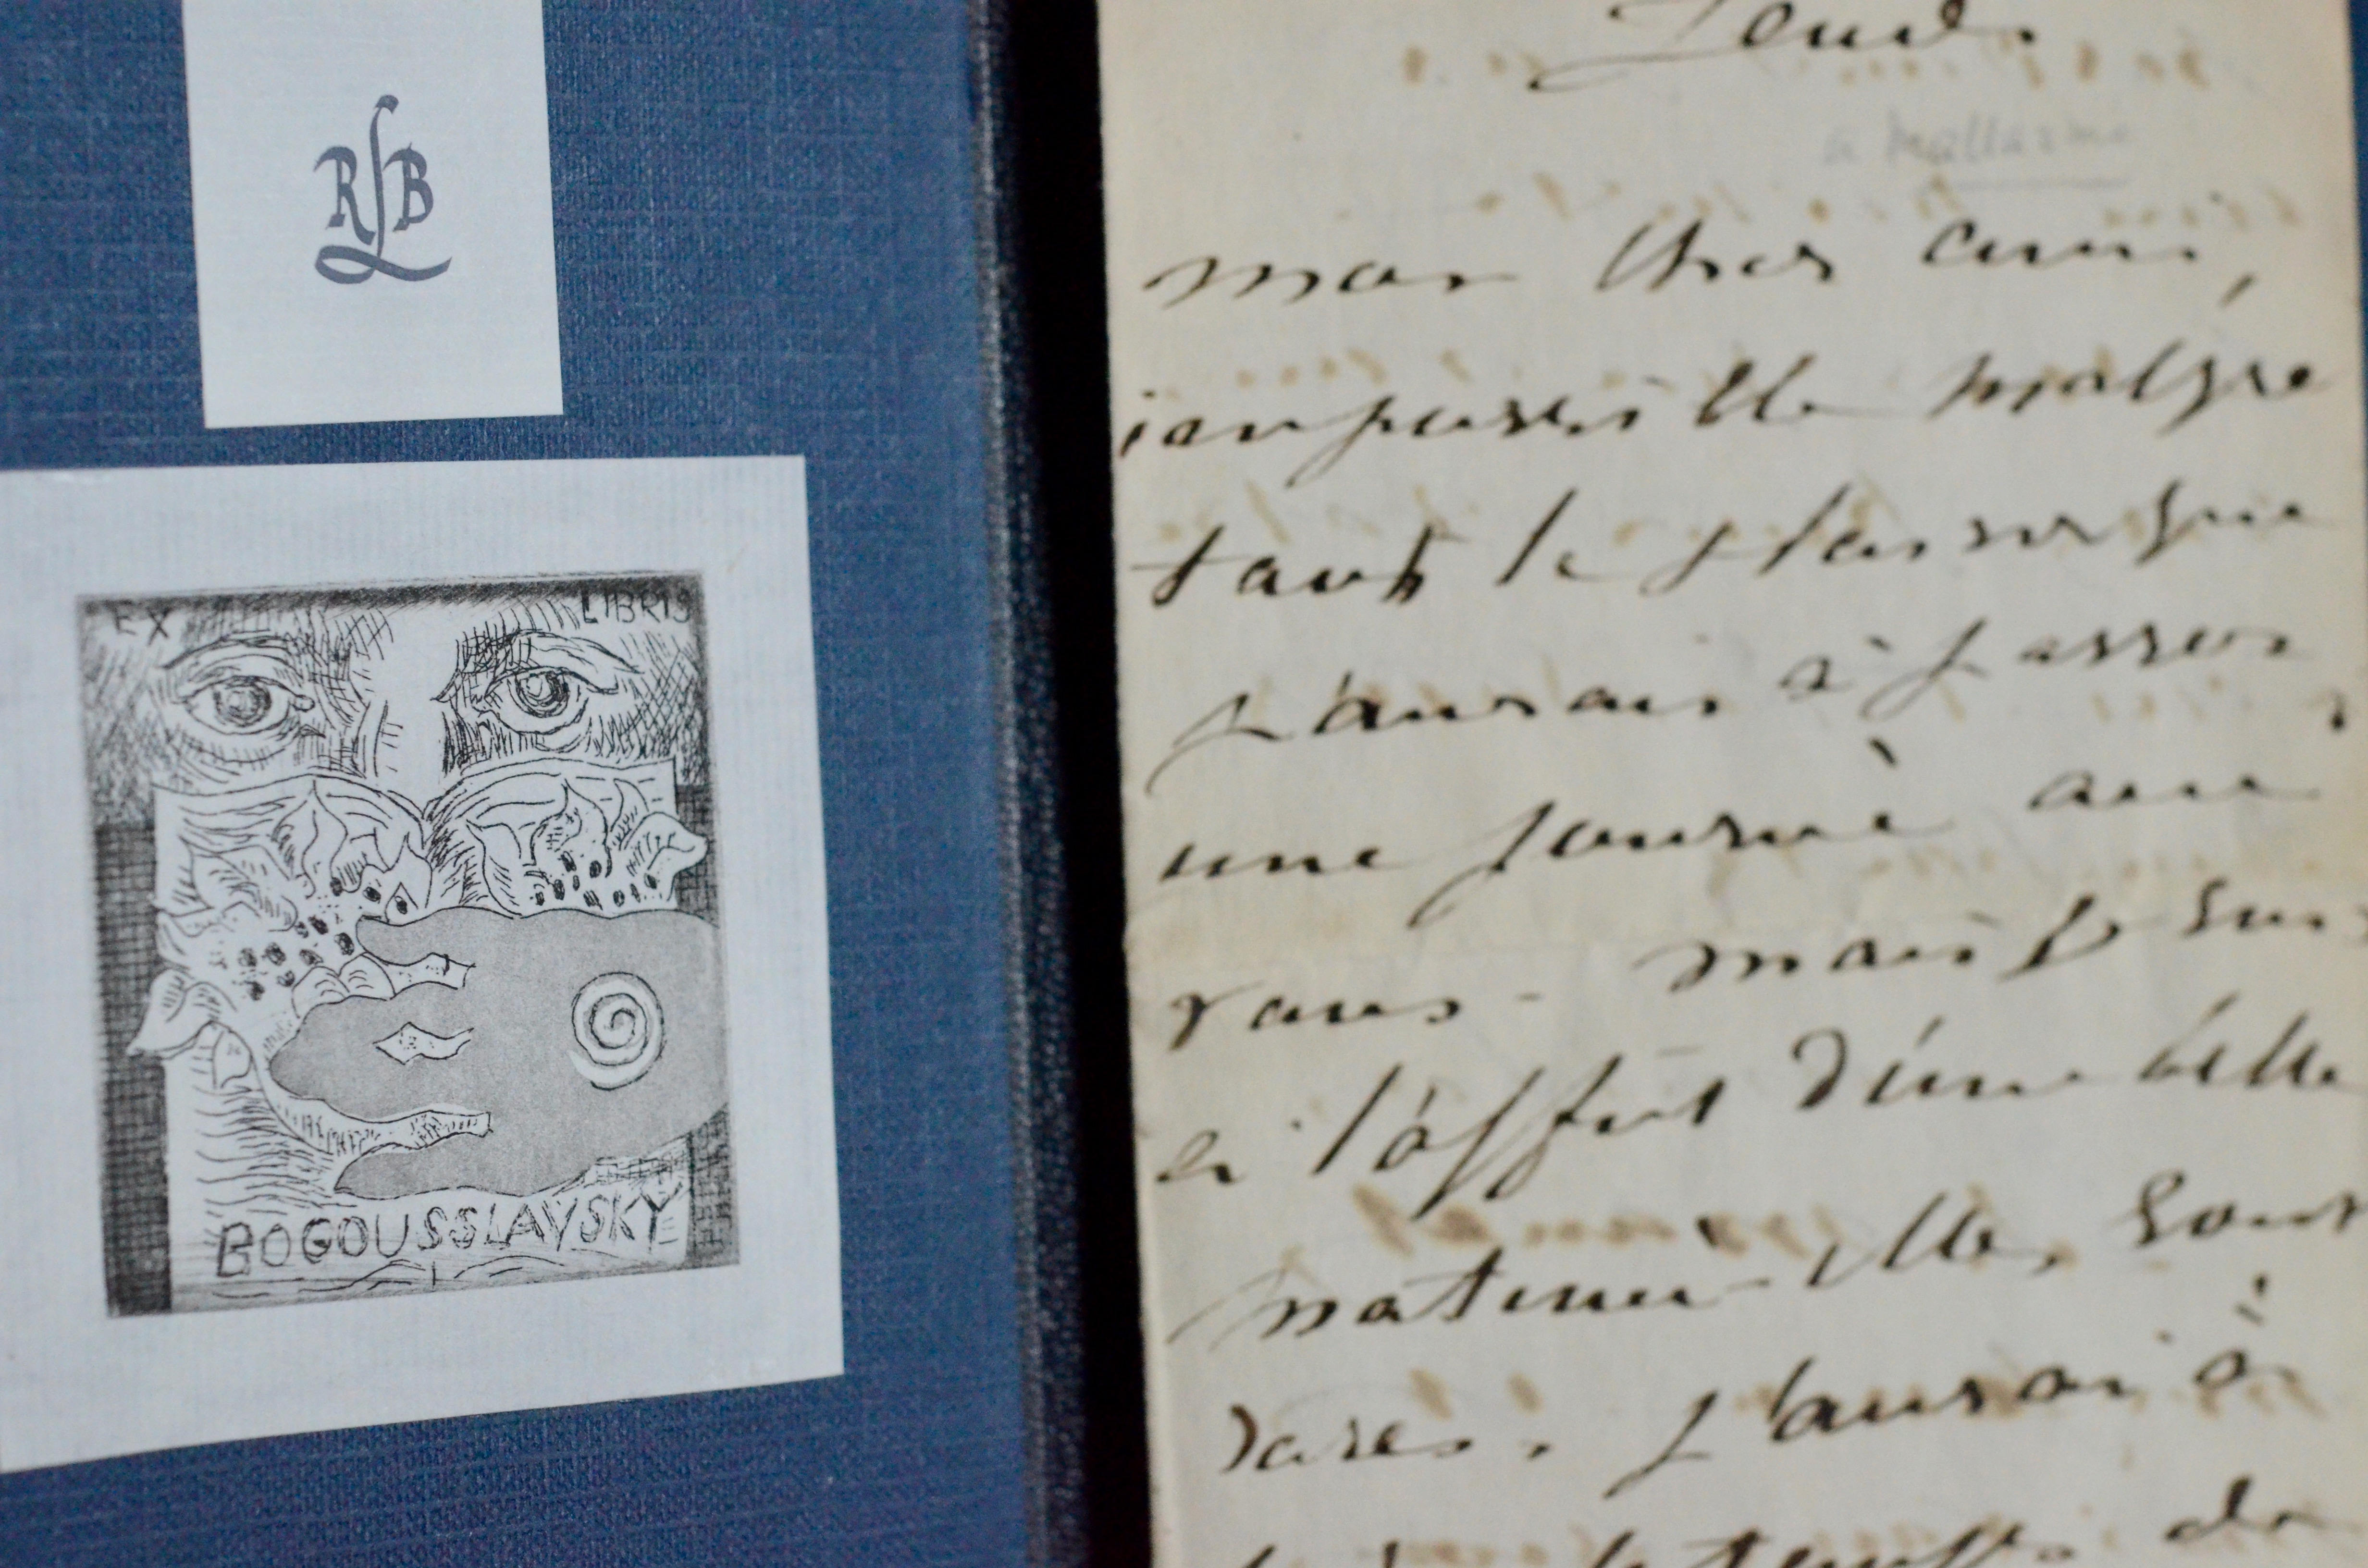 RLB
EX LIBRIS
BOGOUSSLAVSKY
Jeudi
a Mallarmé
mon cher ami,
impossible malgre
tout le plaisir que
j'aurais à passer
une journé avec
vous - mais je suis
a l'affut d'une belle
matiné - elles sont
rares. j'aurai à
de